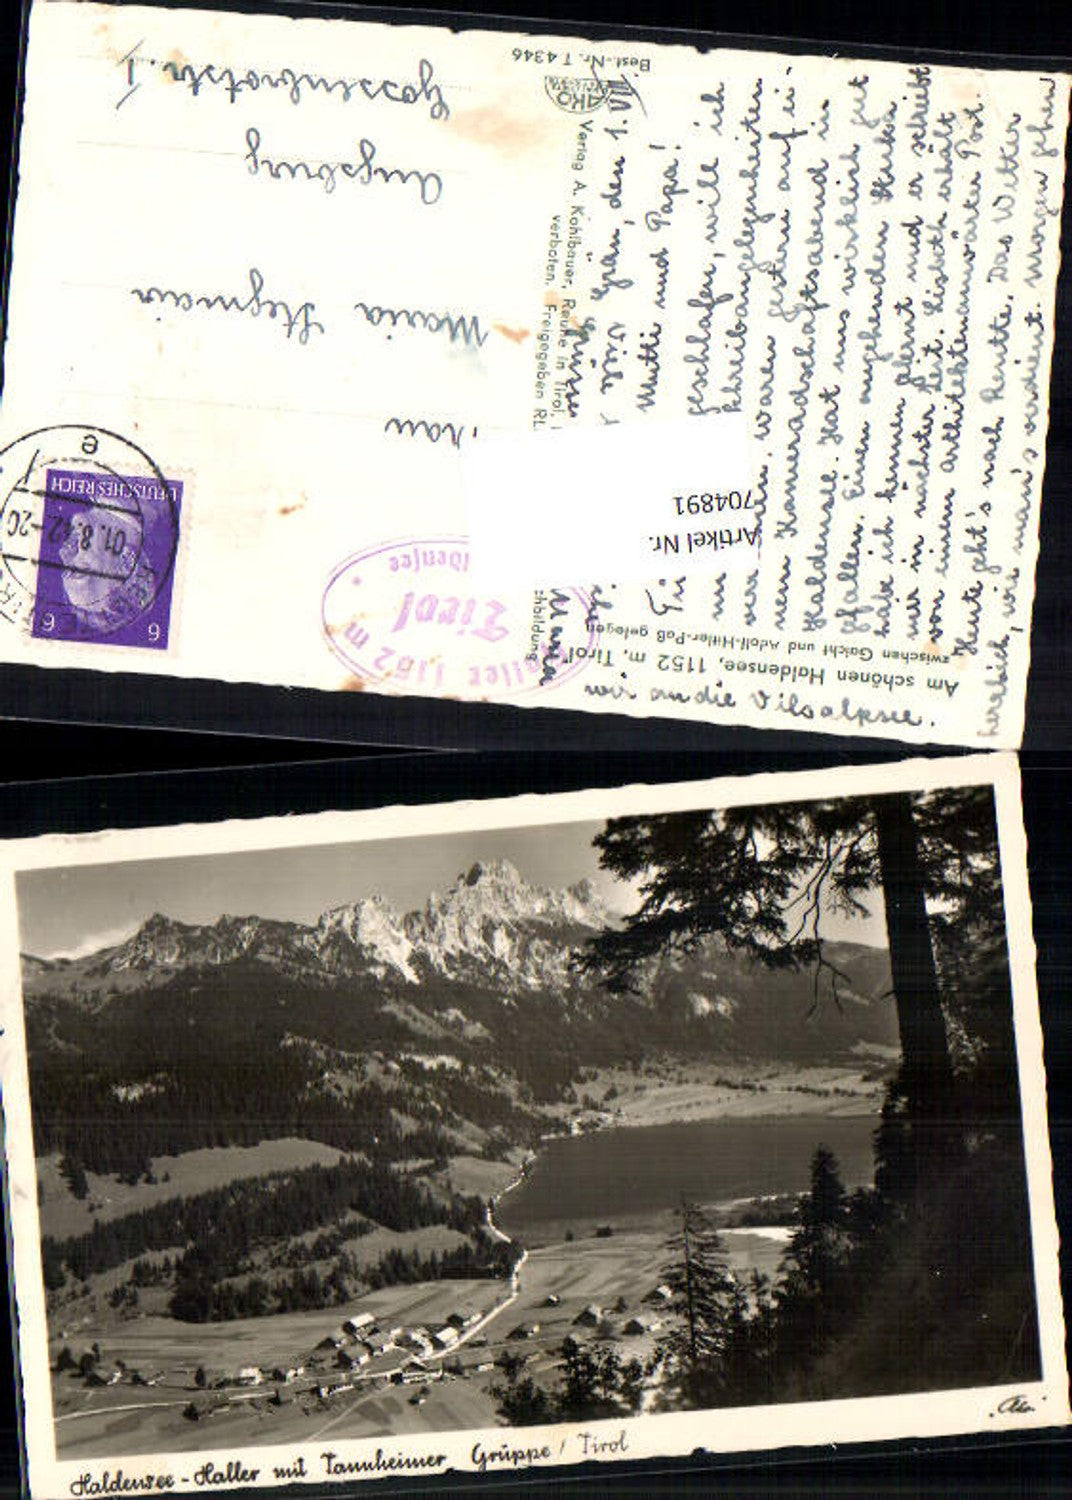 Best.-Nr. T 4346
AKO
Verlag A. Kohlbauer, Reutte in Tirol,
verboten. Freigegeben RL
Am schönen Haldensee, 1152 m, Tirol
zwischen Gaicht und Adolf-Hitler-Paß gelegen
Frau
Maria Stegmair
Augsburg
Gossenbrotstr. 1
DEUTSCHES REICH
6 6
01.8.42-20
e
Haller 1152 m
Tirol
Grän, den 1. VIII
Mutti und Papa!
geschlafen, will ich
Schreibangelegenheiten
waren gestern auf ei-
nem Kameradschaftsabend in
Haldensee. Hat uns wirklich gut
gfallen. Einen angehenden Stuka
habe ich kennen glernt und er schreibt
mir in nächster Zeit. Lisbeth erhält
von einem Architektenanwärter Post.
Heute geht's nach Reutte. Das Wetter
herrlich, wie man's verdient. Morgen gehen
wir an die Vilsalpsee.
Maria
Artikel Nr.
704891
Haldensee-Haller mit Tannheimer Grüppe / Tirol